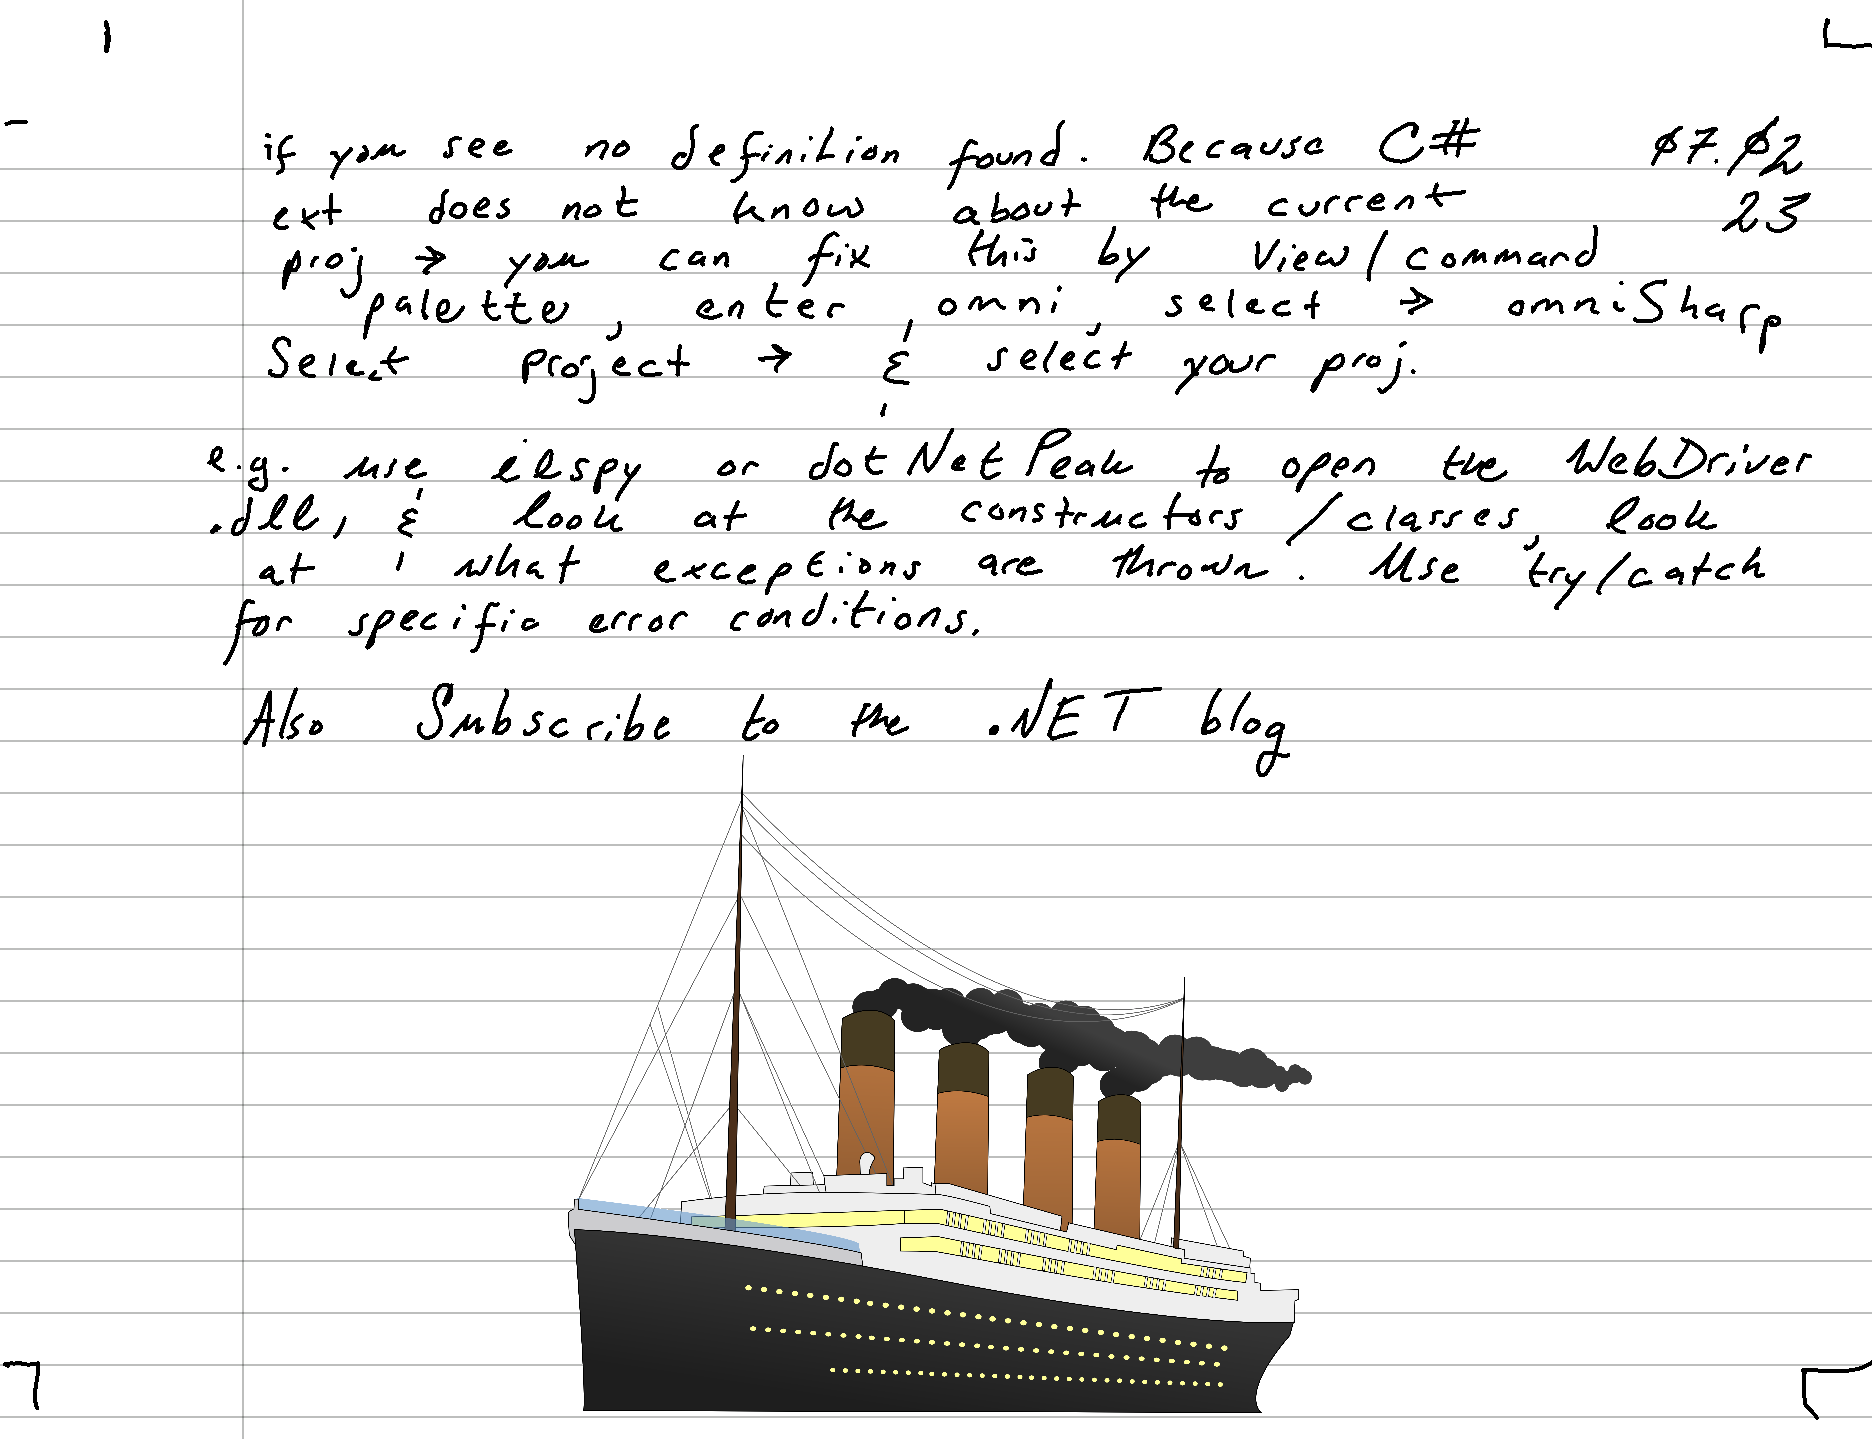 if you see no definition found. Because C# 07.02
ext does not know about the current 23
proj → you can fix this by View/command
palette, enter, omni, select → omniSharp
Select Project → & select your proj.
e.g. use ilspy or dotNetPeak to open the WebDriver
.dll, & look at the constructors/classes, look
at what exceptions are thrown. Use try/catch
for specific error conditions.
Also Subscribe to the .NET blog